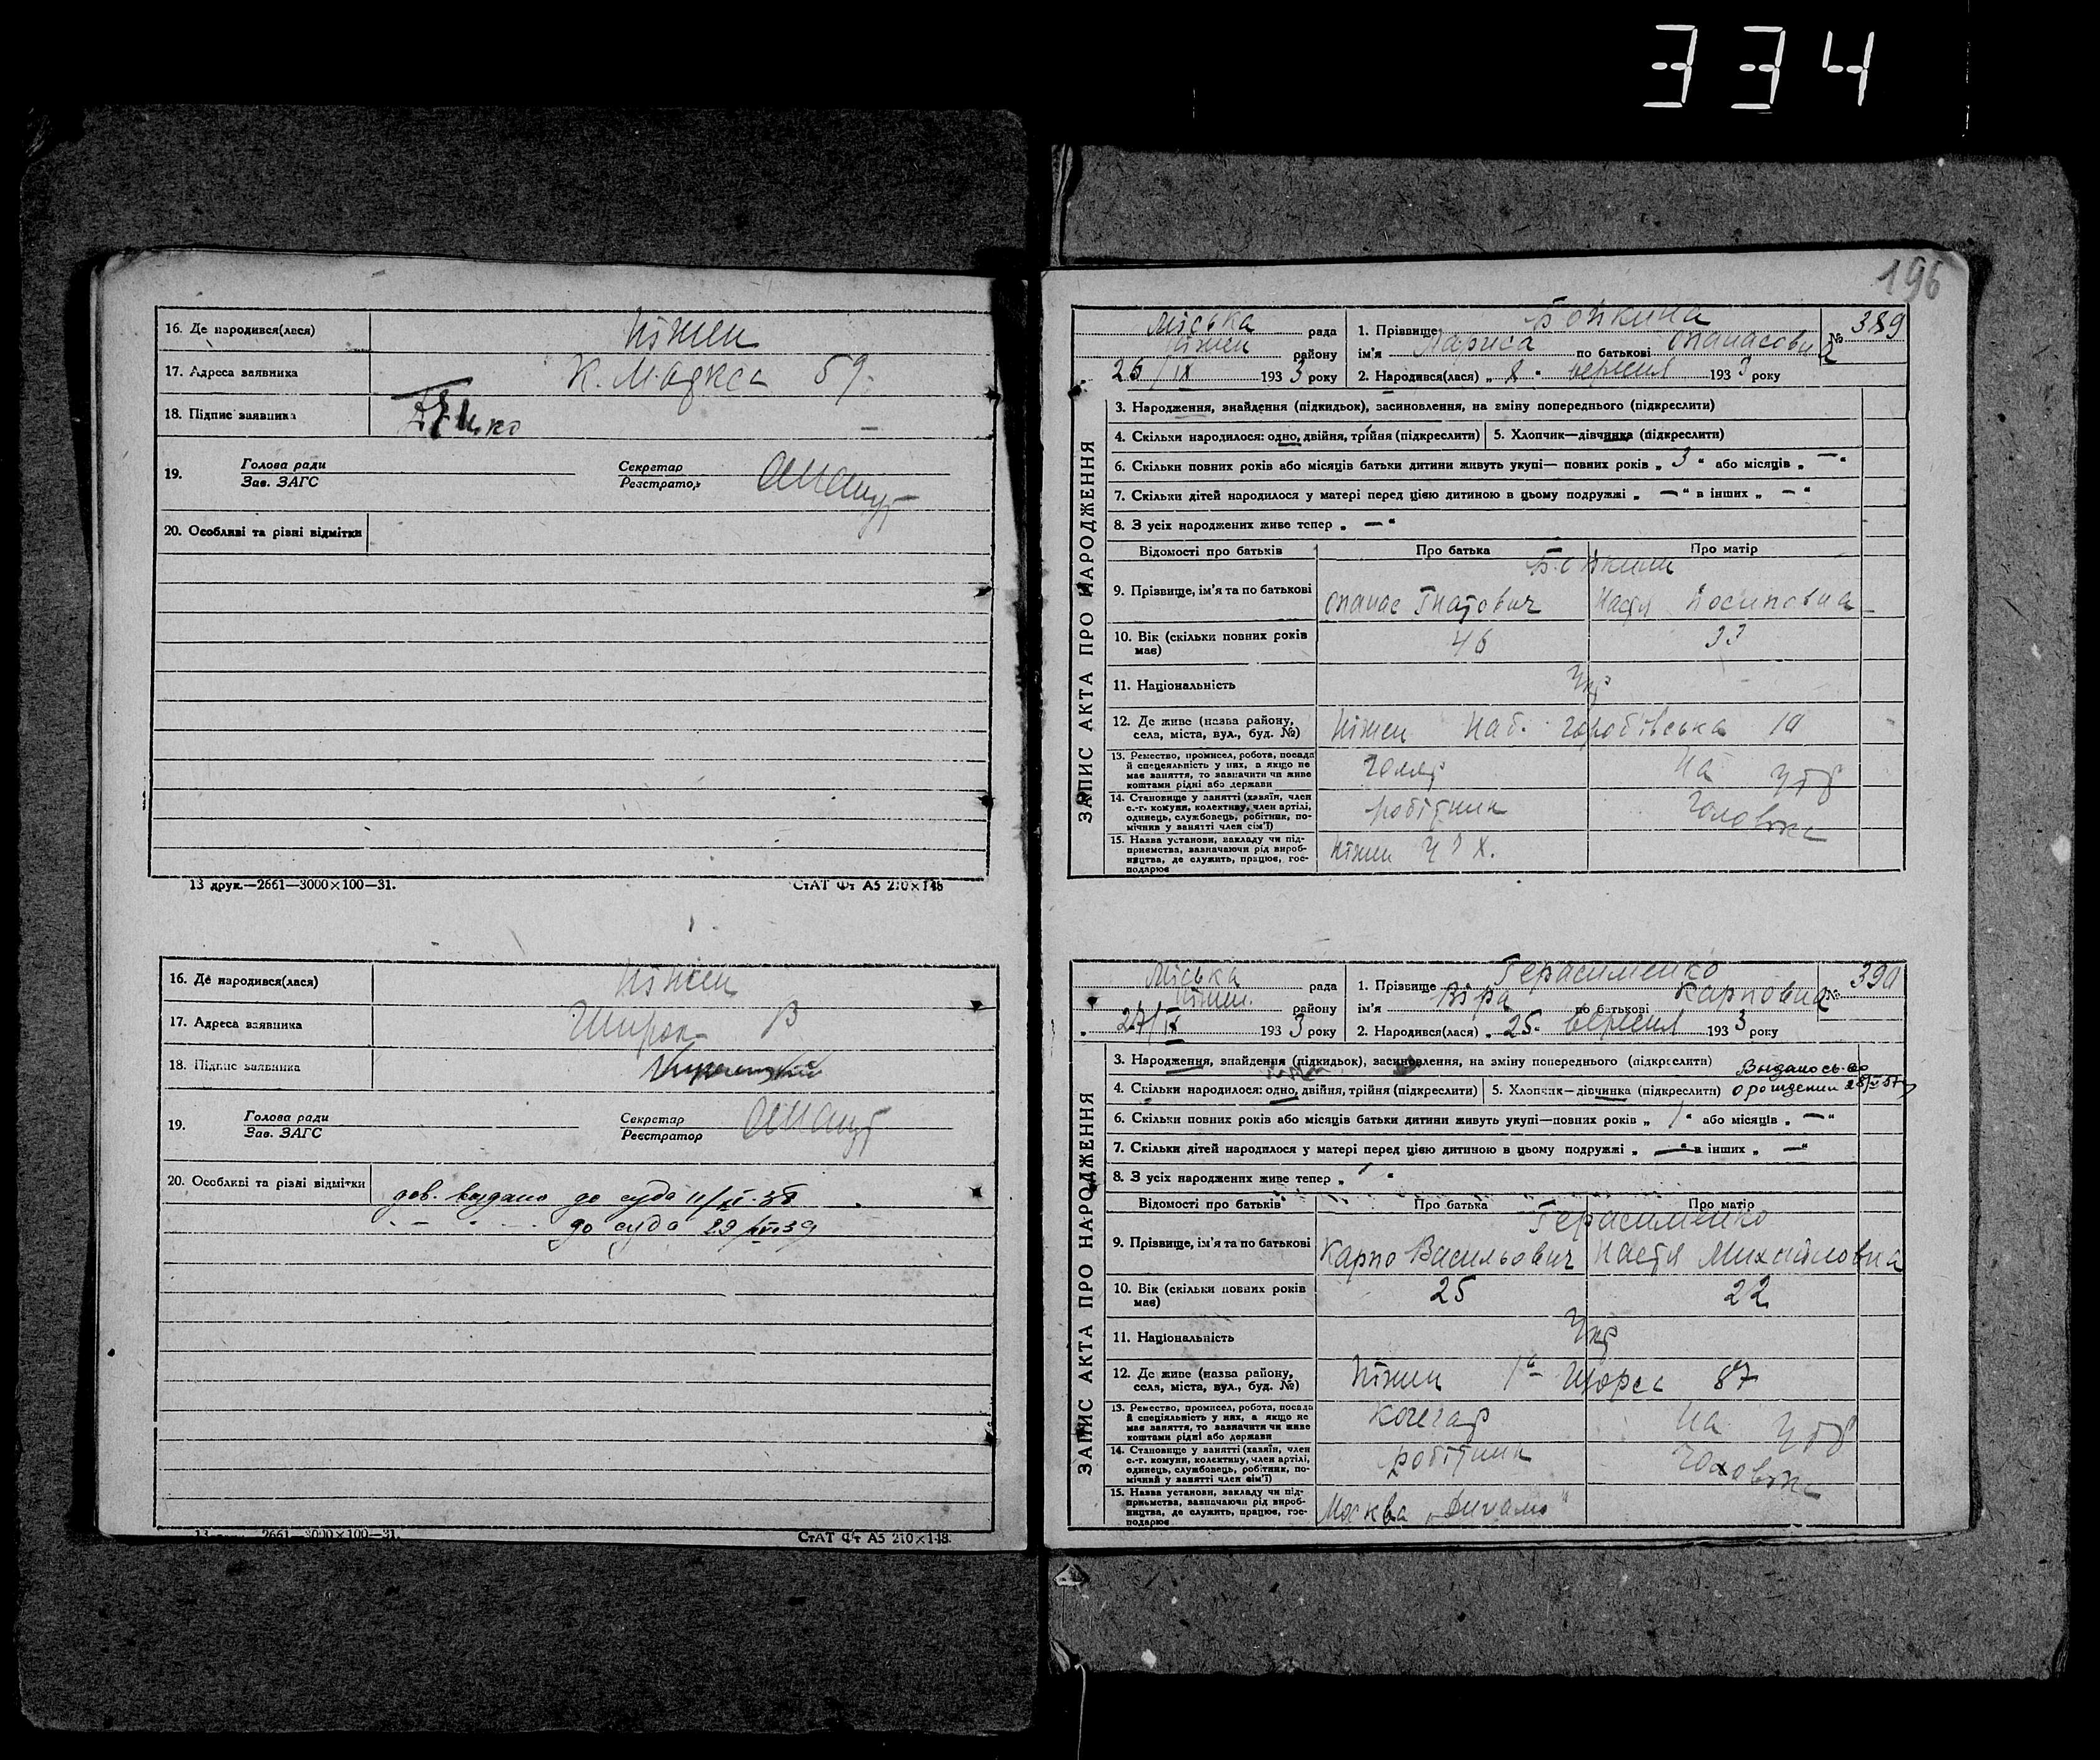 334
16. Де народився(лася) Ніжен
17. Адреса заявника К. Маркса 59
18. Підпис заявника
19. Голова ради Секретар
Зав. ЗАГС Реєстратор
20. Особливі та різні відмітки
13 друк.—2661—3000×100—31. СтАТ Фт А5 210×148
16. Де народився(лася) Ніжен
17. Адреса заявника
18. Підпис заявника
19. Голова ради Секретар
Зав. ЗАГС Реєстратор
20. Особливі та різні відмітки дов. видано до суда 11/II.38
до суда 29/VII 39
2661—3000×100—31. СтАТ Фт А5 210×148.
196
ЗАПИС АКТА ПРО НАРОДЖЕННЯ
Міська рада 1. Прізвище Бойкина № 389
Ніжен району ім'я Лариса по батькові Опанасовна
26/IX 1933 року 2. Народився(лася) „8“ вересня 1933 року
3. Народження, знайдення (підкидьок), засиновлення, на зміну попереднього (підкреслити)
4. Скільки народилося: одно, двійня, трійня (підкреслити) 5. Хлопчик—дівчинка (підкреслити)
6. Скільки повних років або місяців батьки дитини живуть укупі— повних років „3“ або місяців „—“
7. Скільки дітей народилося у матері перед цією дитиною в цьому подружжі „—“ в інших „—“
8. З усіх народжених живе тепер „—“
Відомості про батьків Про батька Про матір
Бойкини
9. Прізвище, ім'я та по батькові Опанас Гнатович Настя Йосиповна
10. Вік (скільки повних років 46 33
має)
11. Національність Укр
12. Де живе (назва району, Ніжен Наб. 10
села, міста, вул., буд. №)
13. Ремество, промисел, робота, посада На утр
й спецеяльність у них, а якщо не
має заняття, то зазначити чи живе
коштами рідні або держави
14. Становище у занятті (хазяїн, член робітник Чоловіка
с.-г. комуни, колективу, член артілі,
одинець, службовець, робітник, по-
мічник у занятті член сім'ї)
15. Назва установи, закладу чи під- Ніжен
приємства, зазначаючи рід вироб-
ництва, де служить, працює, гос-
подарює
ЗАПИС АКТА ПРО НАРОДЖЕННЯ
Міська рада 1. Прізвище Герасименко № 390
Ніжен. району ім'я Віра по батькові Карповна
27/IX 1933 року 2. Народився(лася) „25“ вересня 1933 року
3. Народження, знайдення (підкидьок), засиновлення, на зміну попереднього (підкреслити) Выдано св-во
4. Скільки народилося: одно, двійня, трійня (підкреслити) 5. Хлопчик—дівчинка (підкреслити) о рождении
6. Скільки повних років або місяців батьки дитини живуть укупі—повних років „1“ або місяців „—“
7. Скільки дітей народилося у матері перед цією дитиною в цьому подружжі „—“ в інших „—“
8. З усіх народжених живе тепер „ “
Відомості про батьків Про батька Про матір
Герасименко
9. Прізвище, ім'я та по батькові Карпо Васильович Настя Михайловна
10. Вік (скільки повних років 25 22
має)
11. Національність Укр
12. Де живе (назва району, Ніжен 1а Щорса 87
села, міста, вул., буд. №)
13. Ремество, промисел, робота, посада Кочегар На утр
й спеціяльність у них, а якщо не
має заняття, то зазначити чи живе
коштами рідні або держави
14. Становище у занятті (хазяїн, член робітник Чоловіка
с.-г. комуни, колективу, член артілі,
одинець, службовець, робітник, по-
мічний у занятті член сім'ї)
15. Назва установи, закладу чи під- Москва „Динамо“
приємства, зазначаючи рід вироб-
ництва, де служить, працює, гос-
подарює